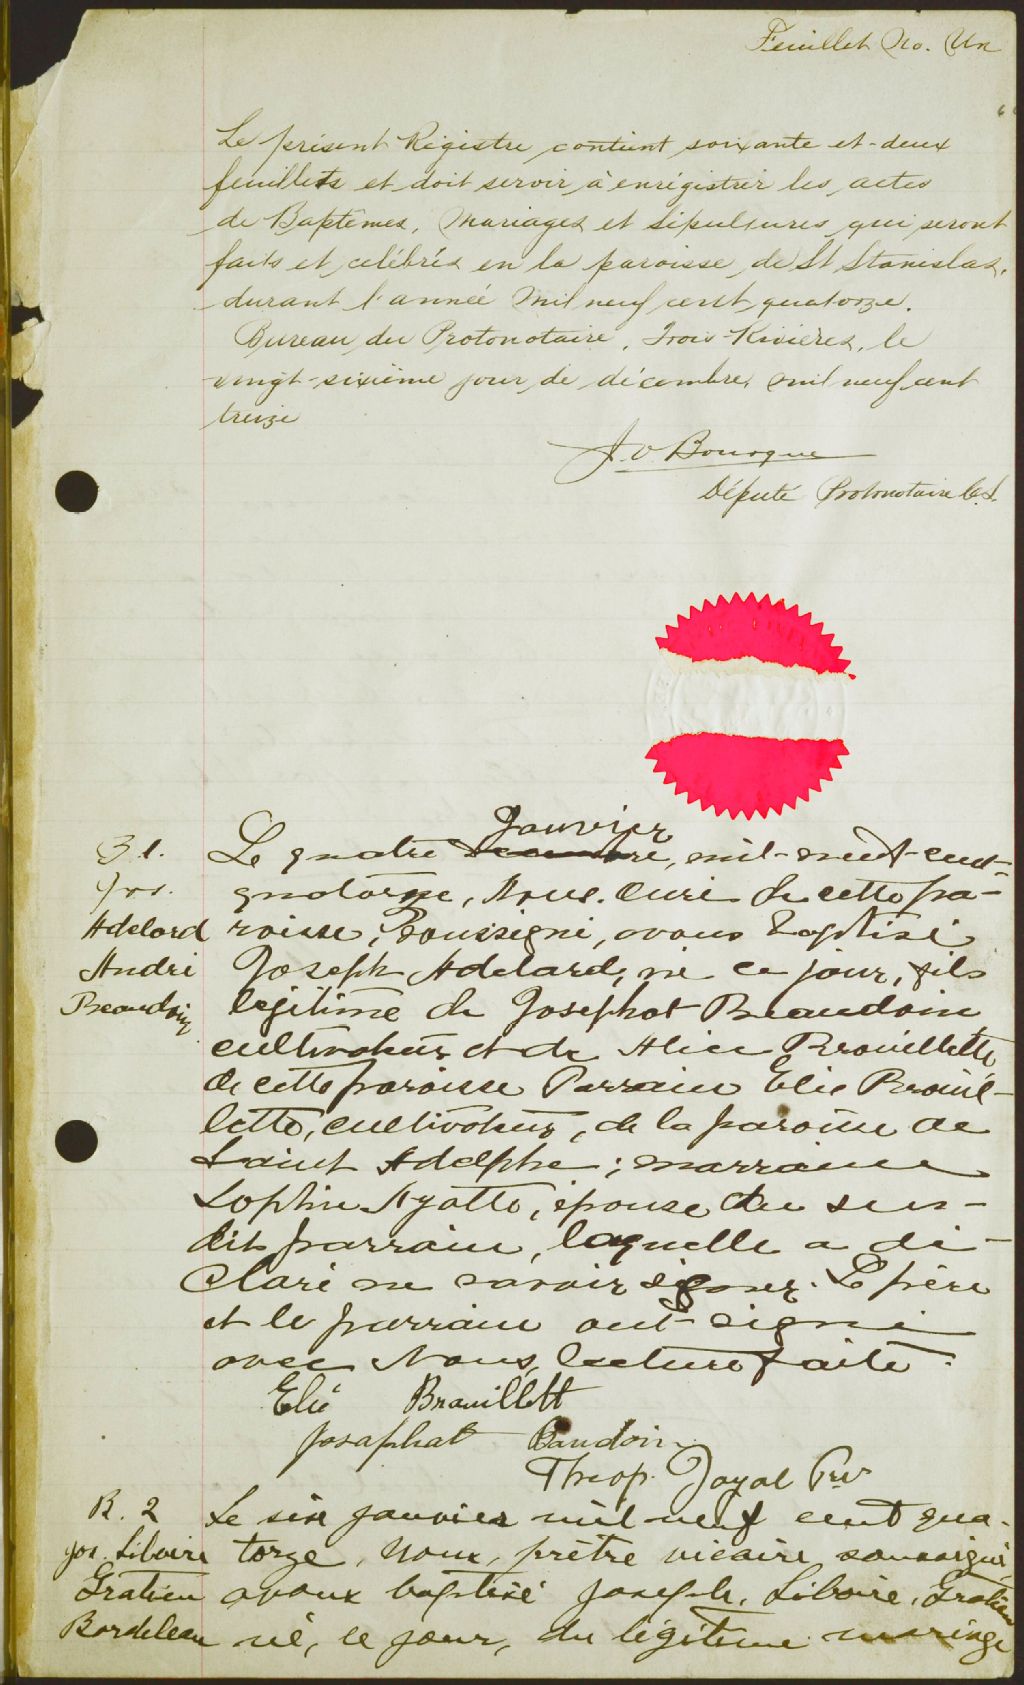 Feuillet No. Un
Le présent Régistre contient soixante et deux
feuillets et doit servir à enrégistrer les actes
de Baptêmes, Mariages et Sépultures qui seront
faits et célébrés en la paroisse de St Stanislas,
durant l'année mil neuf cent quatorze.
Bureau du Protonotaire, Trois-Rivières, le
vingt-sixième jour de décembre mil neuf cent
treize
Député Protonotaire C.S.
Janvier
B 1.
Le quatre, mil-neuf-cent-
Jos.
quatorze, Nous. Curé de cette pa-
Adelard
roisse, soussigné, avons baptisé
André
Joseph Adelard, né ce jour, fils
Beaudoin
légitime de Josephat Beaudoin
cultivateur et de Alice Brouillette,
de cette paroisse Parrain Elie Brouil-
lette, cultivateur, de la paroisse de
Saint Adelphe; marraine
Sophie Ayotte, épouse du sus-
dit parrain, laquelle a dé-
claré ne savoir signer. Le père
et le parrain ont signé
avec Nous, lecture faite.
Elie Brouillett
Josaphat Baudoin
Theop. Joyal Ptre
B. 2
Le six janvier mil neuf cent qua-
Jos. Liboire
torze, nous, prêtre vicaire soussigné,
Gratien
avons baptisé Joseph, Liboire, Gratien
Bordeleau
né, ce jour, du légitime mariage